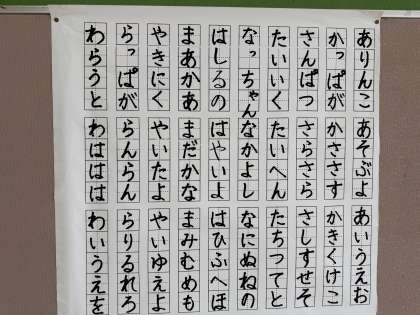 ありんこ あそぶよ あいうえお
かっぱが かささす かきくけこ
さんぱつ さらさら さしすせそ
たいいく たいへん たちつてと
なっちゃん なかよし なにぬねの
はしるの はやいよ はひふへほ
まあかあ まだかな まみむめも
やきにく やいたよ やいゆえよ
らっぱが らんらん らりるれろ
わらうと わははは わいうえを